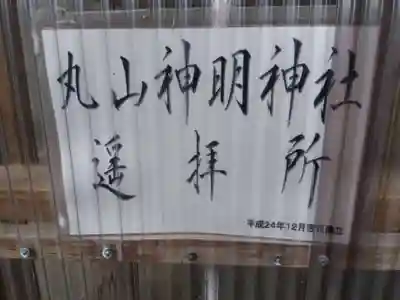 丸山神明神社
遥拝所
平成24年12月吉日建立